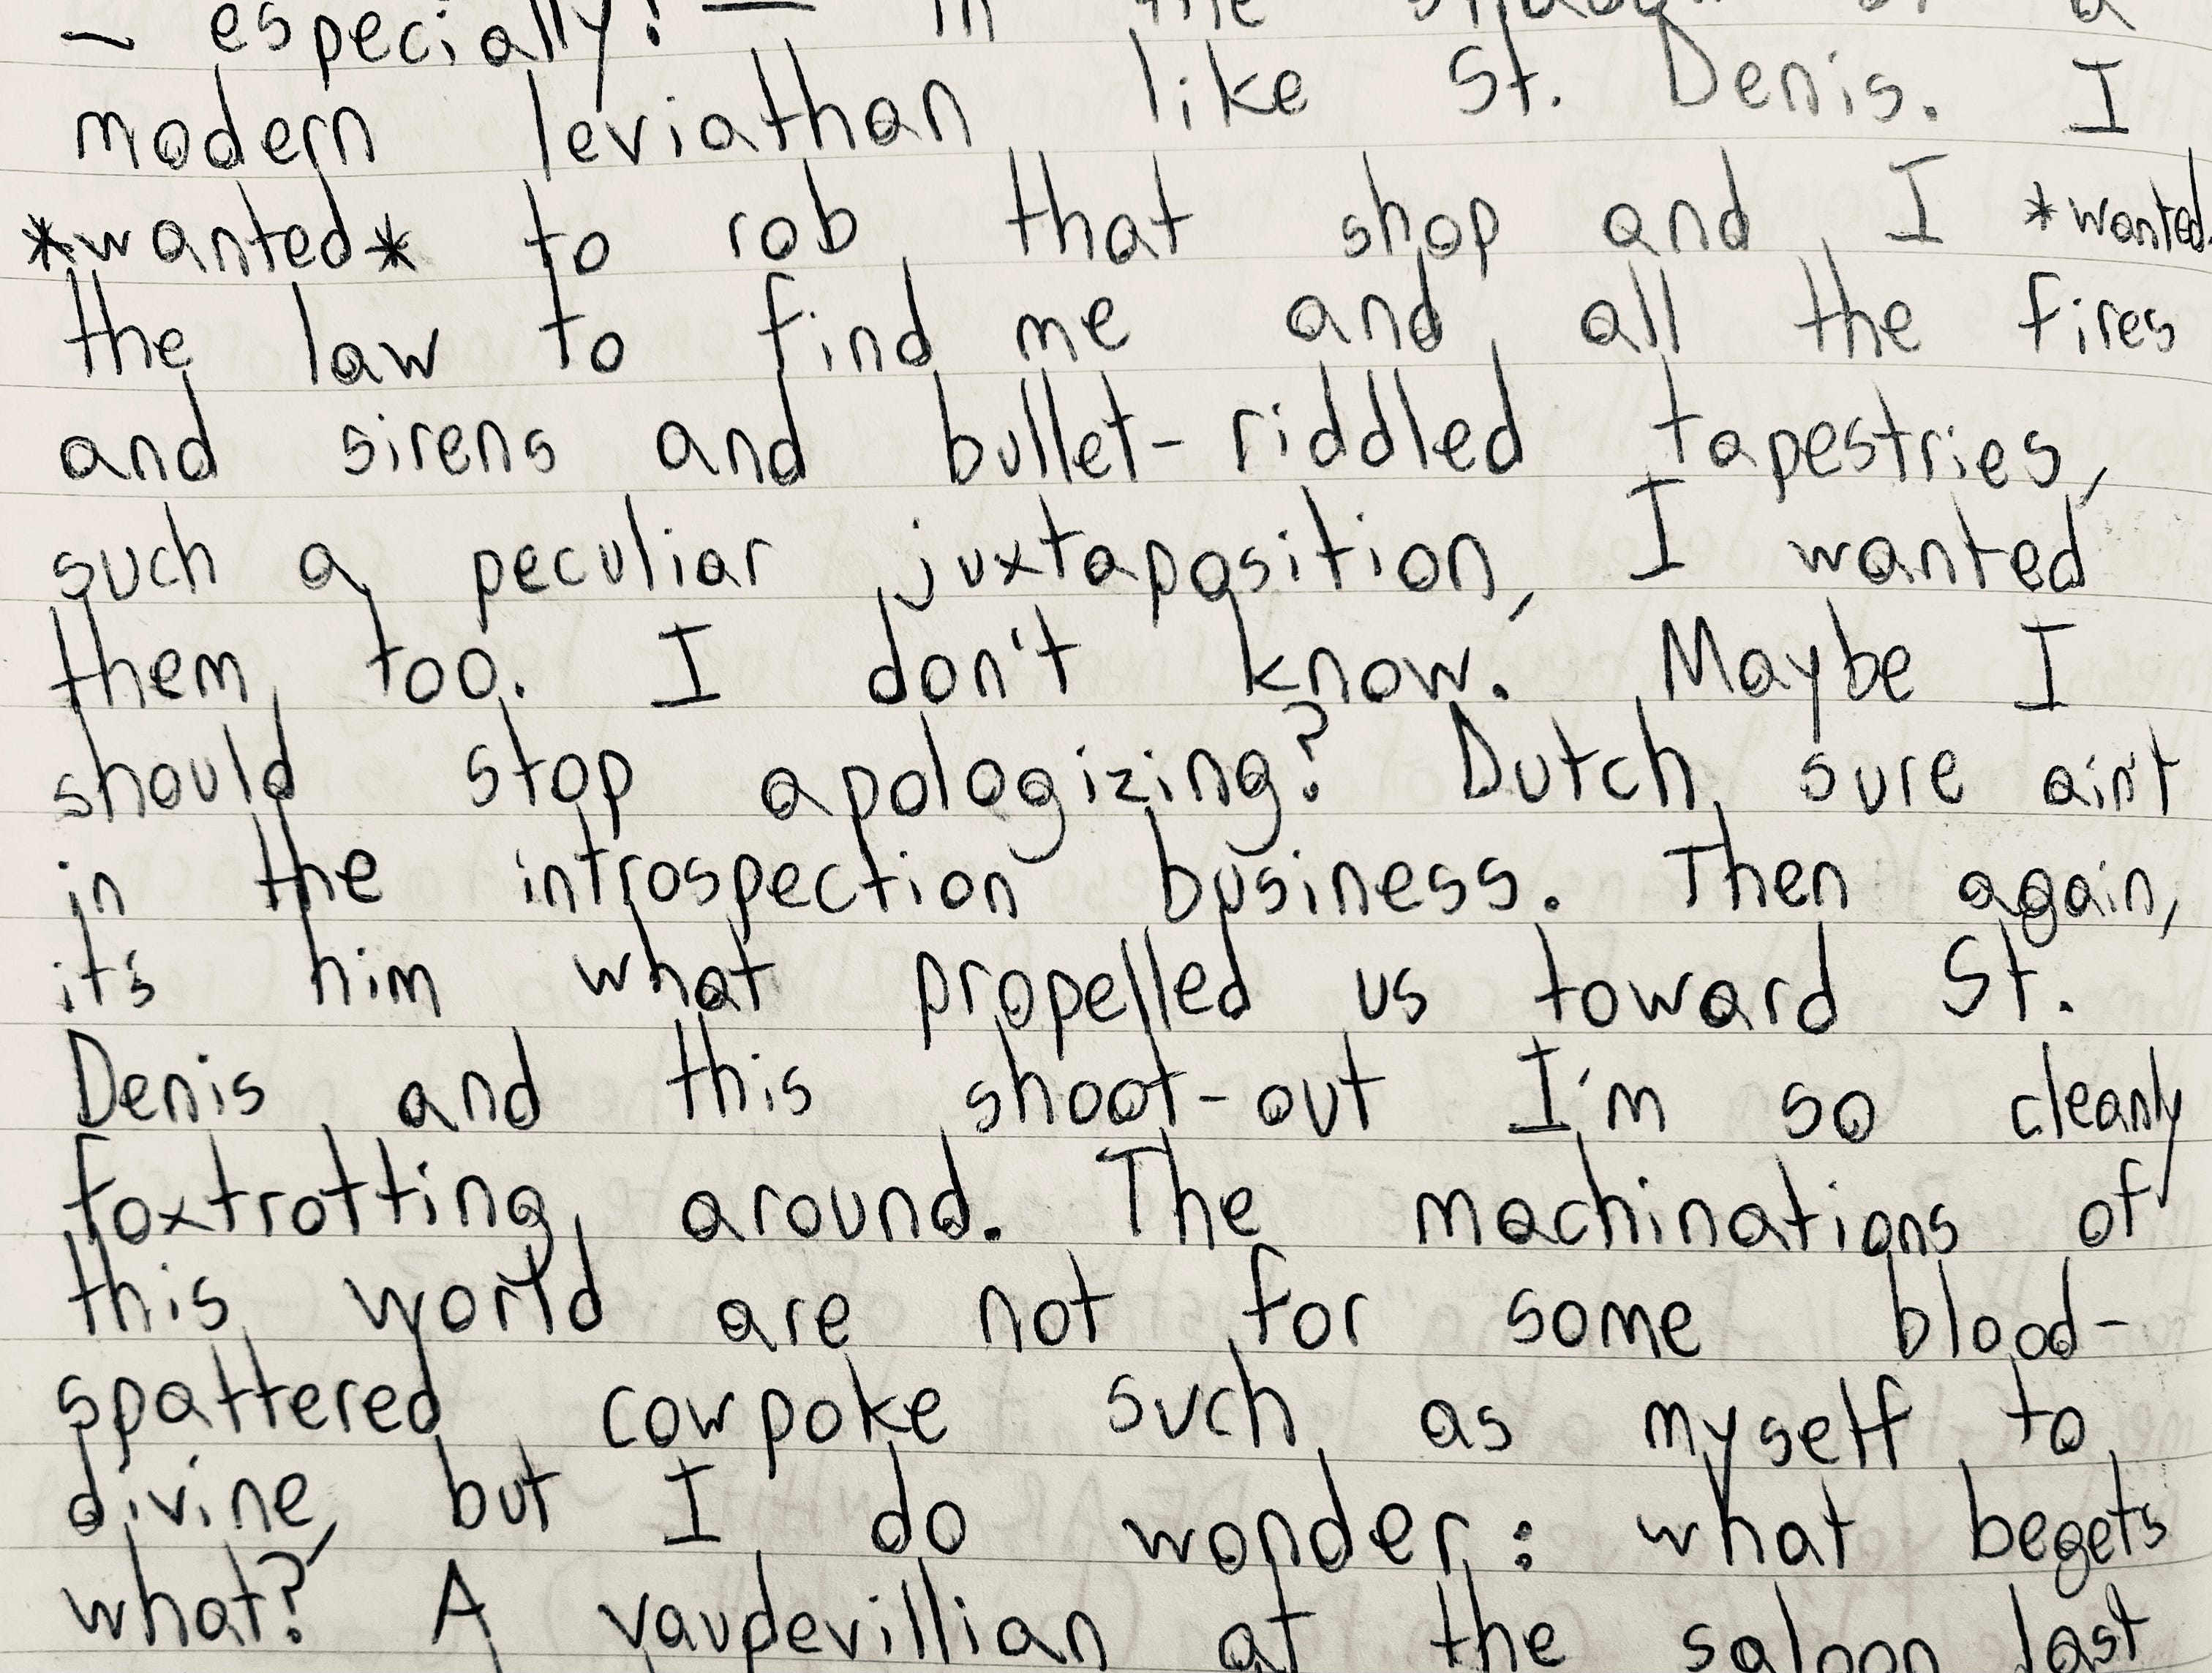 – especially! — in the shadow of a
modern leviathan like St. Denis. I
*wanted* to rob that shop and I *wanted
the law to find me and all the fires
and sirens and bullet-riddled tapestries,
such a peculiar juxtaposition, I wanted
them too. I don't know. Maybe I
should stop apologizing? Dutch sure ain't
in the introspection business. Then again,
it's him what propelled us toward St.
Denis and this shoot-out I'm so cleanly
foxtrotting around. The machinations of
this world are not for some blood-
spattered cowpoke such as myself to
divine, but I do wonder: what begets
what? A vaudevillian at the saloon last